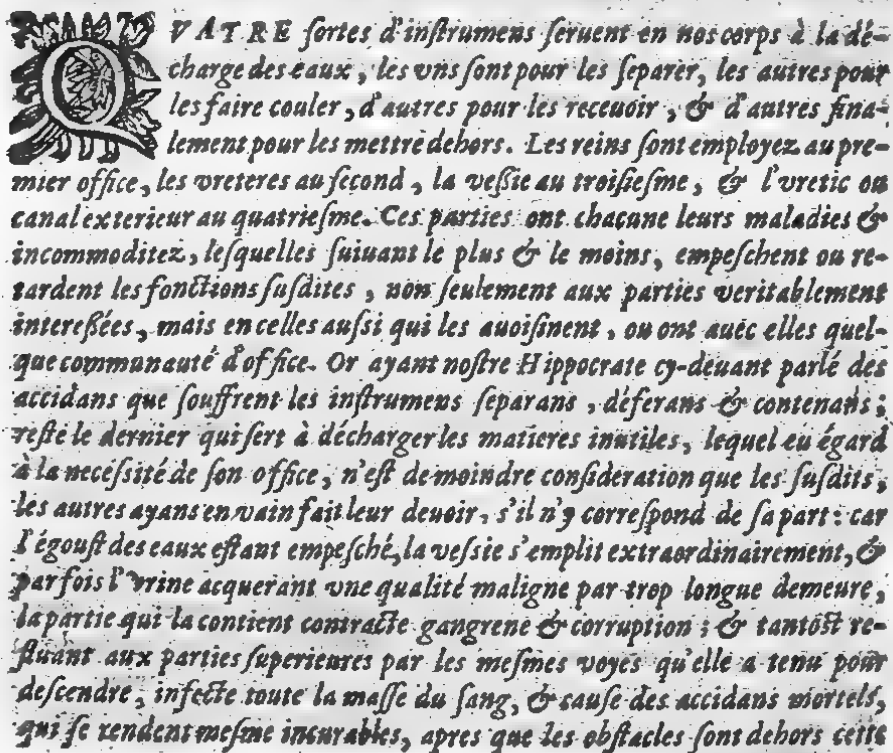 QVATRE ſortes d'inſtrumens ſeruent en nos corps à la dé-
charge des eaux, les vns ſont pour les ſeparer, les autres pour
les faire couler, d'autres pour les receuoir, & d'autres fina-
lement pour les mettre dehors. Les reins ſont employez au pre-
mier office, les vreteres au ſecond, la veßie au troiſieſme, & l'vretic ou
canal exterieur au quatrieſme. Ces parties ont chacune leurs maladies &
incommoditez, leſquelles ſuiuant le plus & le moins, empeſchent ou re-
tardent les fonctions ſuſdites, non ſeulement aux parties veritablement
intereßées, mais en celles auſsi qui les auoiſinent, ou ont auec elles quel-
que communauté d'office. Or ayant noſtre Hippocrate cy-deuant parlé des
accidans que ſouffrent les inſtrumens ſeparans, déferans & contenans;
reſte le dernier qui ſert à décharger les matieres inutiles, lequel eu égard
à la neceſsité de ſon office, n'eſt de moindre conſideration que les ſuſdits,
les autres ayans en vain fait leur deuoir, s'il n'y correſpond de ſa part: car
l'égouſt des eaux eſtant empeſché, la veſsie s'emplit extraordinairement, &
parfois l'vrine acquerant vne qualité maligne par trop longue demeure,
la partie qui la contient contracte gangrene & corruption; & tantoſt re-
fluant aux parties ſuperieures par les meſmes voyes qu'elle a tenu pour
deſcendre, infecte toute la maſſe du ſang, & cauſe des accidans mortels,
qui ſe rendent meſme incurables, apres que les obſtacles ſont dehors cette